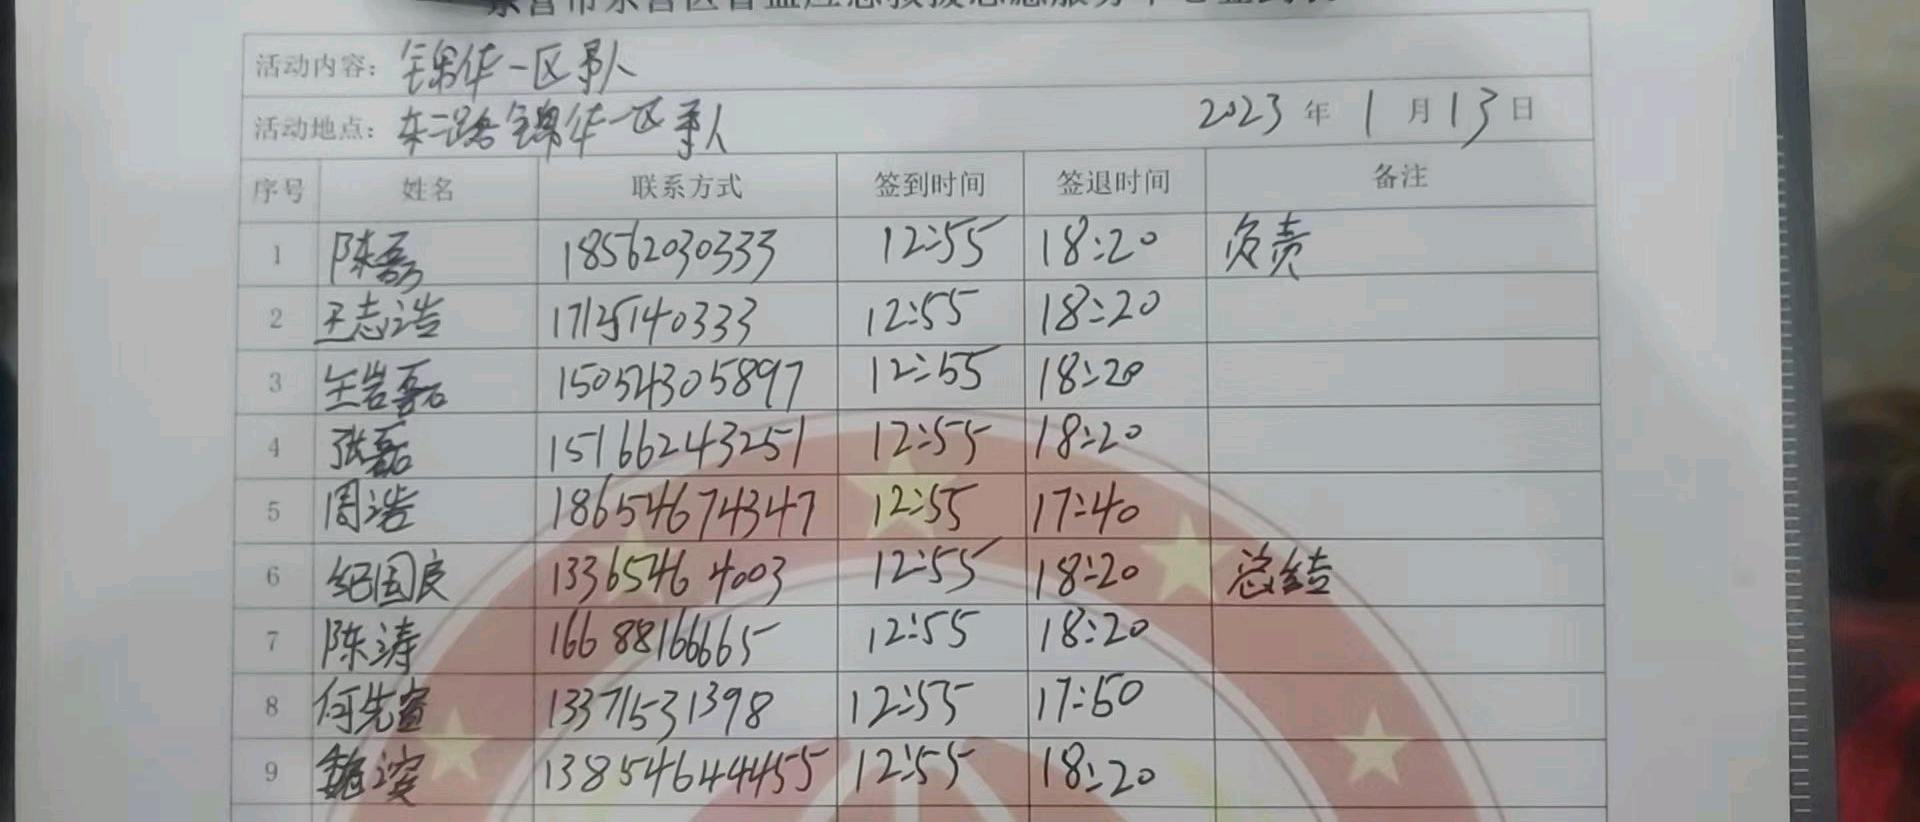 活动内容：锦华一区寻人
活动地点：东二路锦华一区寻人 2023年1月13日
序号 姓名 联系方式 签到时间 签退时间 备注
1 陈磊 18562030333 12:55 18:20 负责
2 王志浩 17125140333 12:55 18:20
3 王岩磊 15054305897 12:55 18:20
4 张磊 15166243251 12:55 18:20
5 周浩 18654674347 12:55 17:40
6 纪国良 13365464003 12:55 18:20 总结
7 陈涛 16688166665 12:55 18:20
8 何先宣 13371531398 12:55 17:50
9 魏滨 13854644455 12:55 18:20